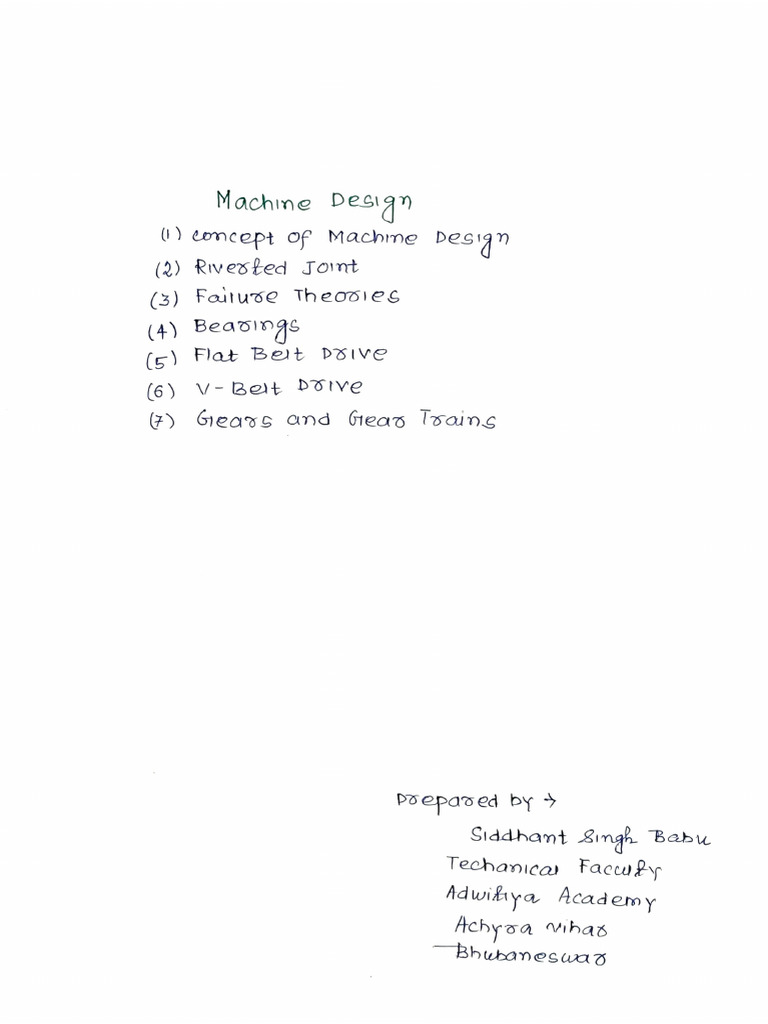 Machine Design
(1) Concept of Machine Design
(2) Riverted Joint
(3) Failure Theories
(4) Bearings
(5) Flat Belt Drive
(6) V-Belt Drive
(7) Gears and Gear Trains
Prepared by →
Siddhant Singh Babu
Techanical Faculty
Adwitiya Academy
Achyra Vihar
Bhubaneswar